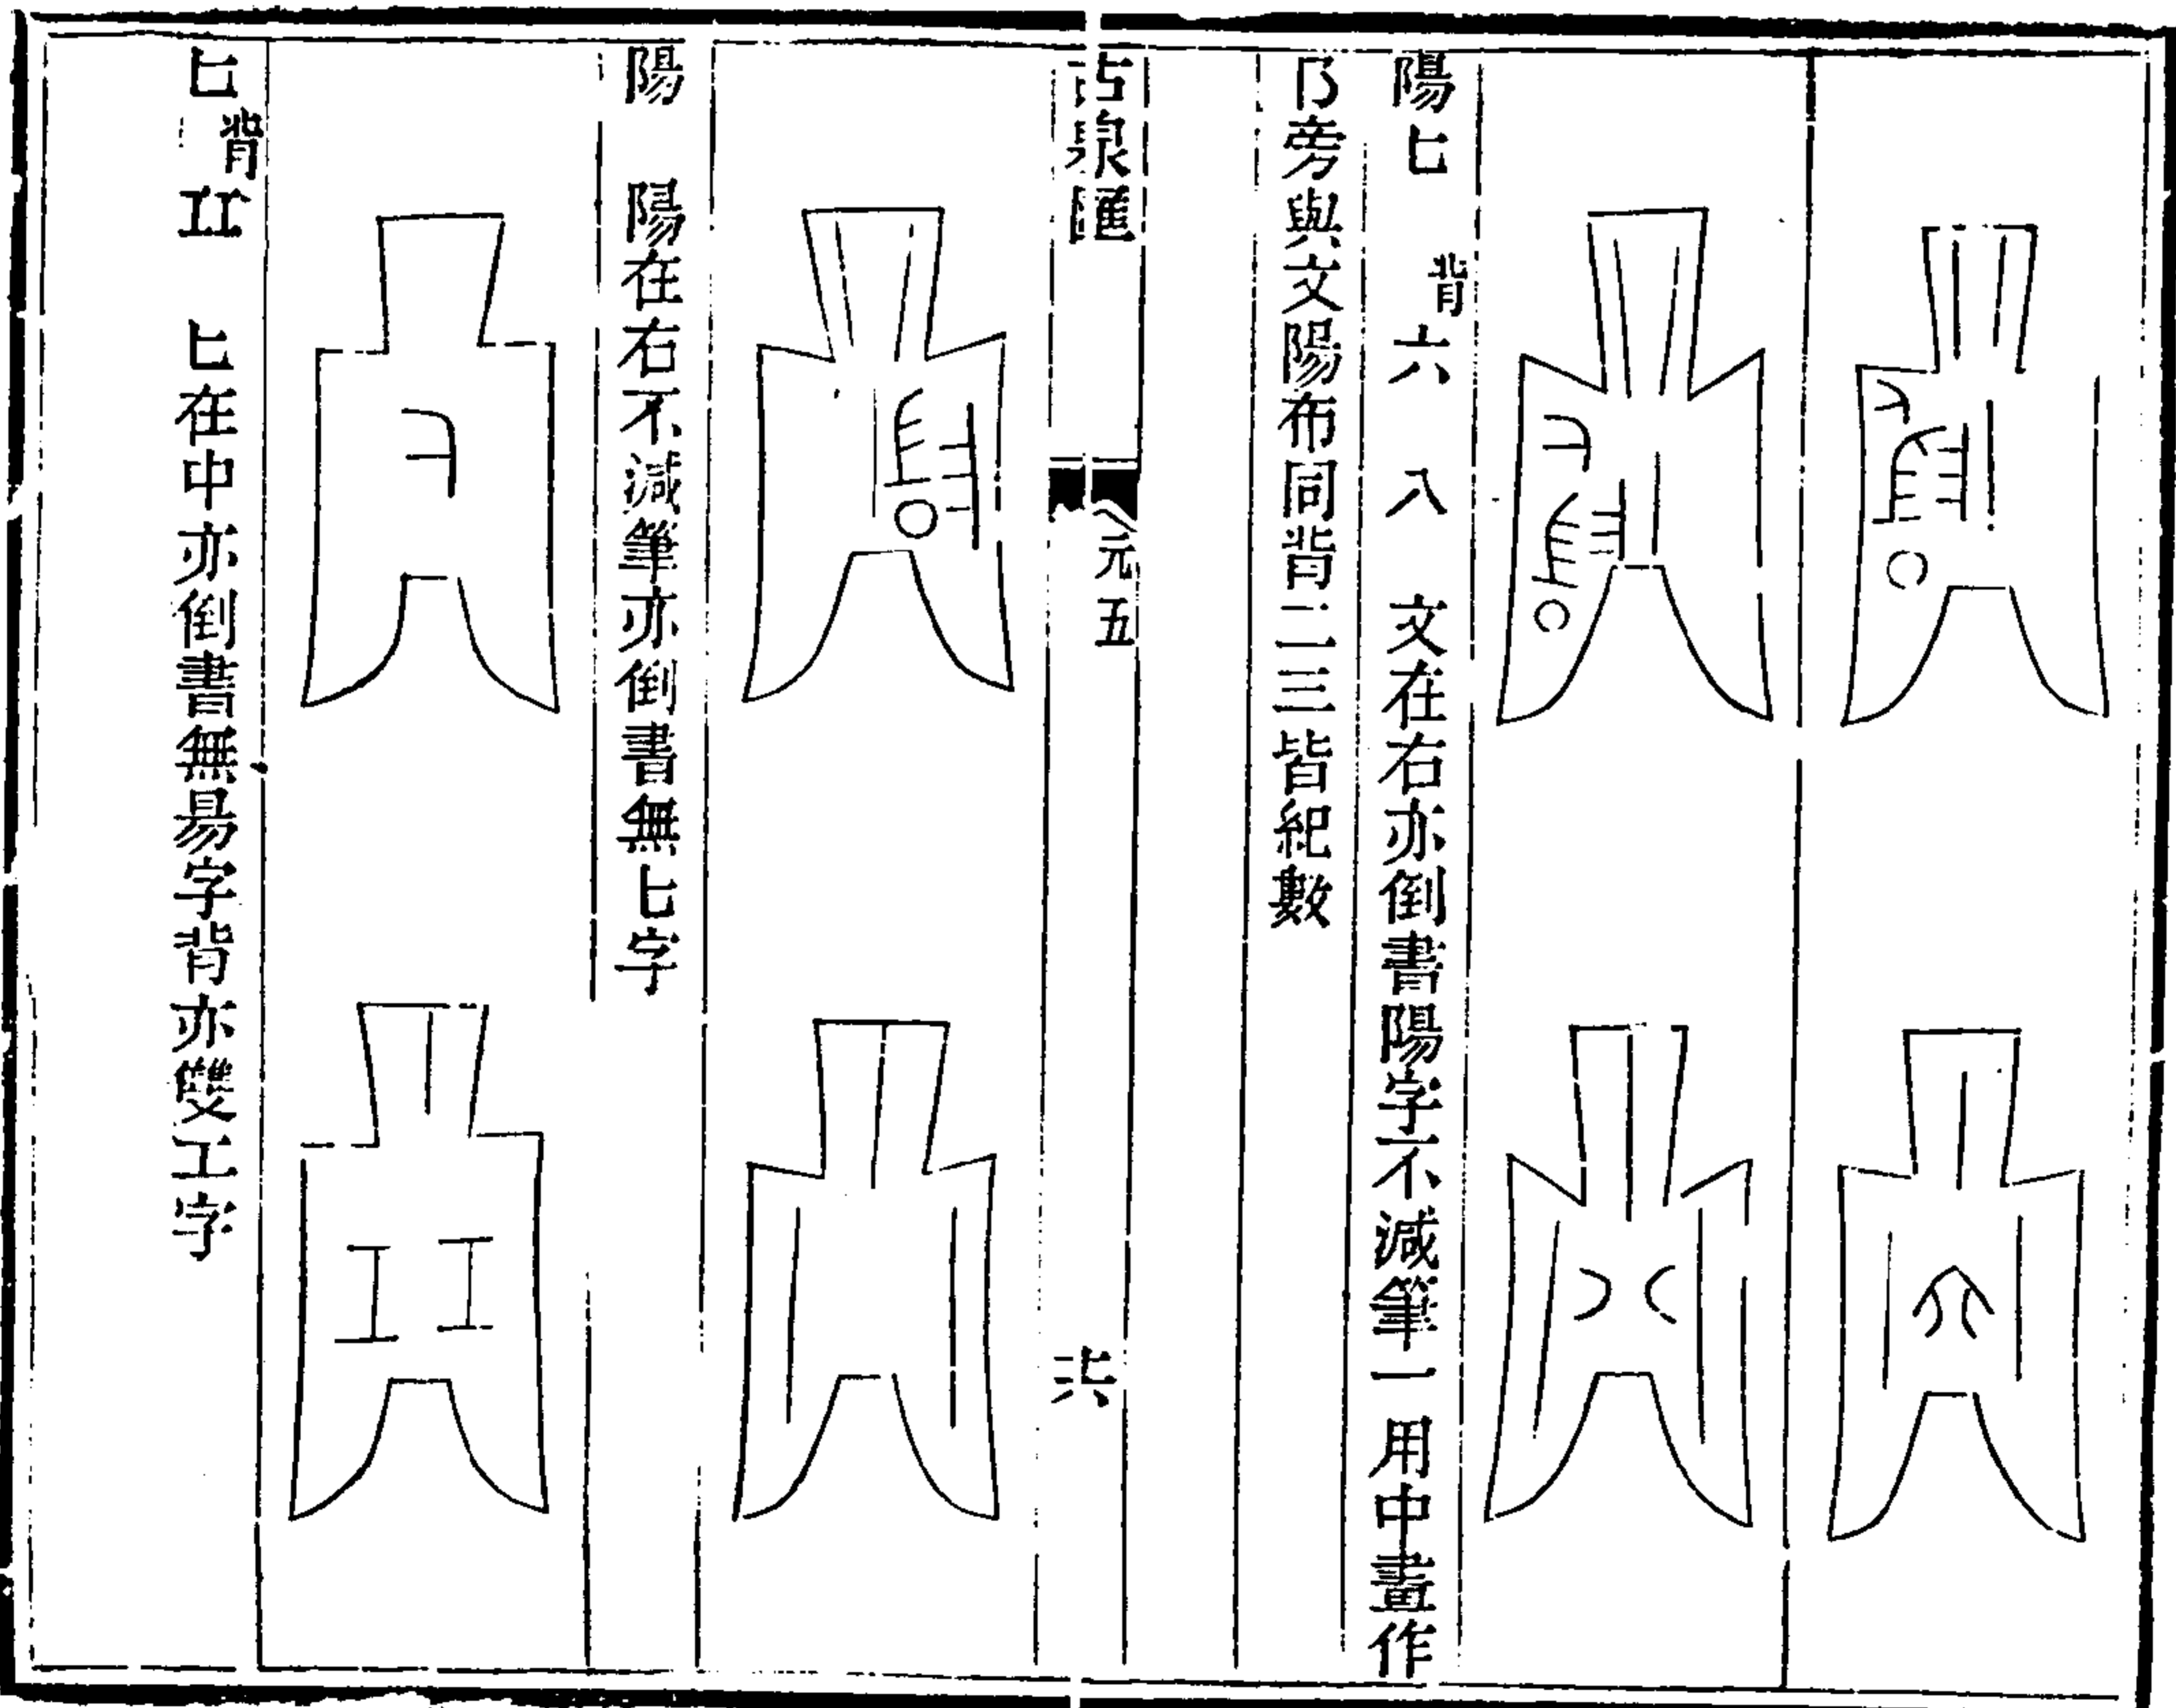 陽匕 背六 八 文在右亦倒書陽字不減筆一用中畫作
阝旁與文陽布同背二三皆紀數
古泉匯 元五 十六
陽 陽在右不減筆亦倒書無匕字
匕 背㠭 匕在中亦倒書無昜字背亦雙工字